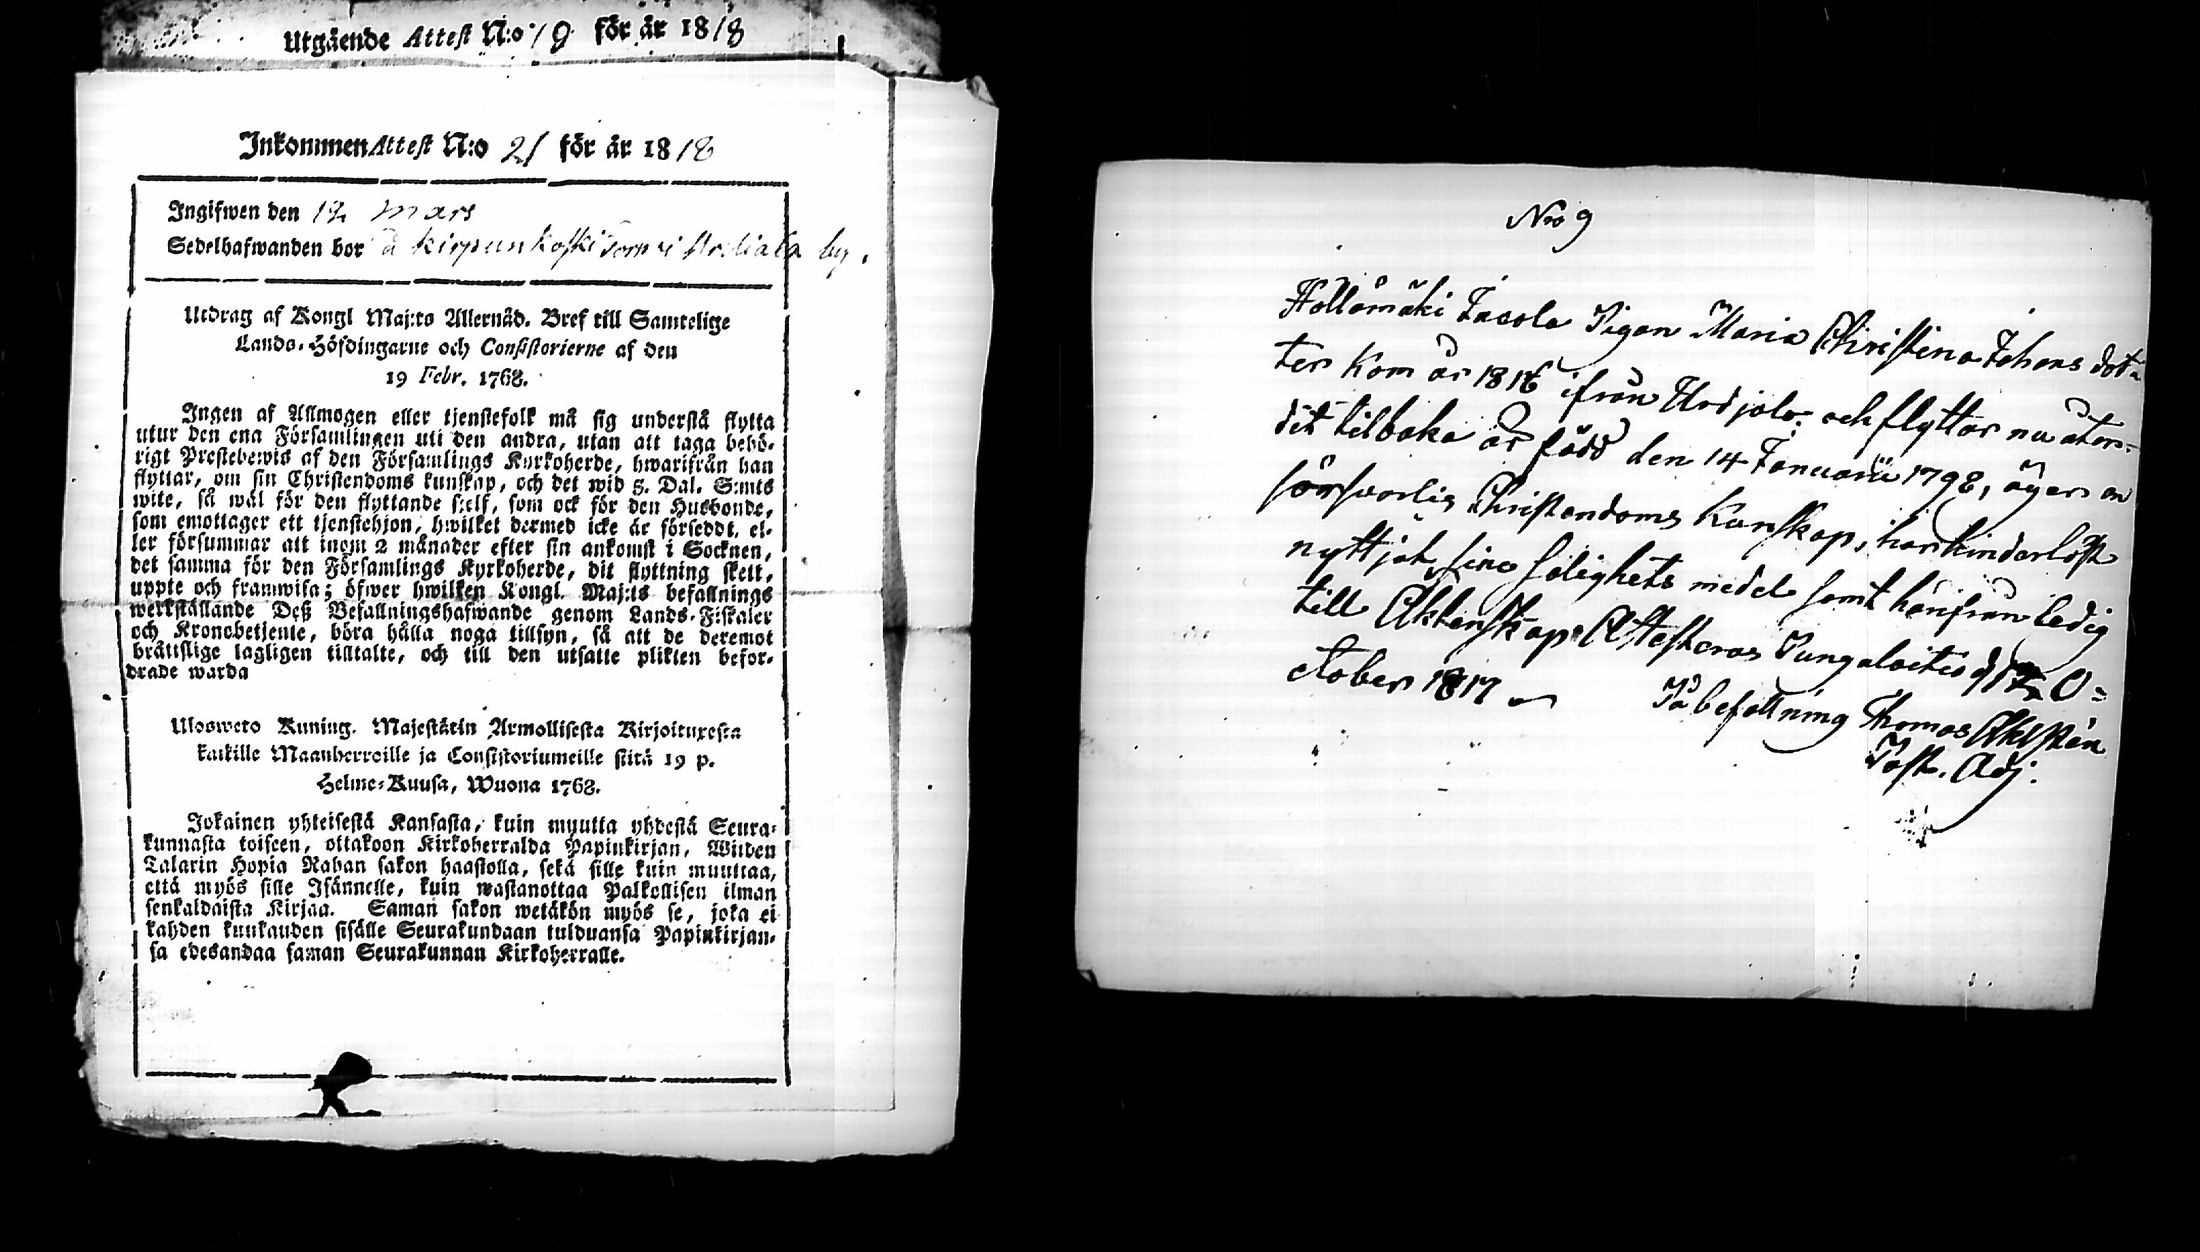 Utgående Attest N:o 19 för år 1818
Inkommen Attest N:o 21 för år 1818
Ingifwen den 12 Mars
Sedelhafwanden bor å Kirpunkoski Torp i by.
Utdrag af Kongl Maj:ts Allernåd. Bref till Samtelige
Lands-Höfdingarne och Consistorierne af den
19 Febr. 1768.
Ingen af Allmogen eller tjenstefolk må sig understå flytta
utur den ena Församlingen uti den andra, utan att taga behö-
rigt Prestebewis af den Församlings Kyrkoherde, hwarifrån han
flyttar, om sin Christendoms kunskap, och det wid 5. Dal. S:mts
wite, så wäl för den flyttande sjelf, som ock för den Husbonde,
som emottager ett tjenstehjon, hwilket dermed icke är försedt, el-
ler försummar att inom 2 månader efter sin ankomst i Socknen,
det samma för den Församlings Kyrkoherde, dit flyttning skett,
uppte och framwisa; öfwer hwilken Kongl. Maj:ts befallnings
werkställande Deß Befallningshafwande genom Lands-Fiskaler
och Kronobetjente, böra hålla noga tillsyn, så att de deremot
bråttslige lagligen tilltalte, och till den utsatte plikten befor-
drade warda
Ulosweto Kuning. Majestätin Armollisesta Kirjoituxesta
kaikille Maanherroille ja Consistoriumeille siitä 19 p.
Helme-Kuusa, Wuona 1768.
Jokainen yhteisestä Kansasta, kuin muutta yhdestä Seura-
kunnasta toiseen, ottakoon Kirkoherralda Papinkirjan, Wiiden
Talarin Hopia Rahan sakon haastolla, sekä sille kuin muuttaa,
että myös sille Isännelle, kuin wastanottaa Palkollisen ilman
senkaldaista Kirjaa. Saman sakon wetäkön myös se, joka ei
kahden kuukauden sisälle Seurakundaan tulduansa Papinkirjan-
sa edesandaa saman Seurakunnan Kirkoherralle.
Nro 9
Hollomäki Jacola Pigan Maria Christina Johans dot-
ter kom år 1816 ifrån Urdjala, och flyttar nu åter-
dit tilbaka är född den 14 Januarii 1798, äger en
försvarlig Christendoms Kunskap, har hinderlöst
nyttjat sine salighets medel samt härifrån ledig
till Äktenskap Attesteras Pungalaitio d 12 O-
ctober 1817
På befallning Thomas Ahlstén
Past. Adj: